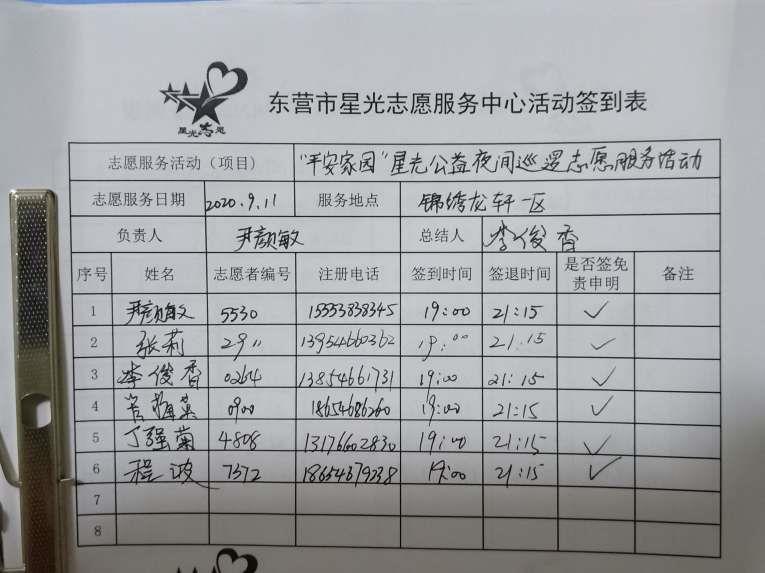 星光志愿
东营市星光志愿服务中心活动签到表
志愿服务活动（项目） "平安家园"星光公益夜间巡逻志愿服务活动
志愿服务日期 2020.9.11 服务地点 锦绣龙轩一区
负责人 尹颜敏 总结人 李俊香
序号 姓名 志愿者编号 注册电话 签到时间 签退时间 是否签免责申明 备注
1 尹颜敏 5530 15553838345 19:00 21:15 ✓
2 张莉 2911 13954660362 19:00 21:15 ✓
3 李俊香 0264 13854661731 19:00 21:15 ✓
4 0900 18654686260 19:00 21:15 ✓
5 丁强菊 4808 13176602830 19:00 21:15 ✓
6 程波 7372 18654679238 19:00 21:15 ✓
7
8